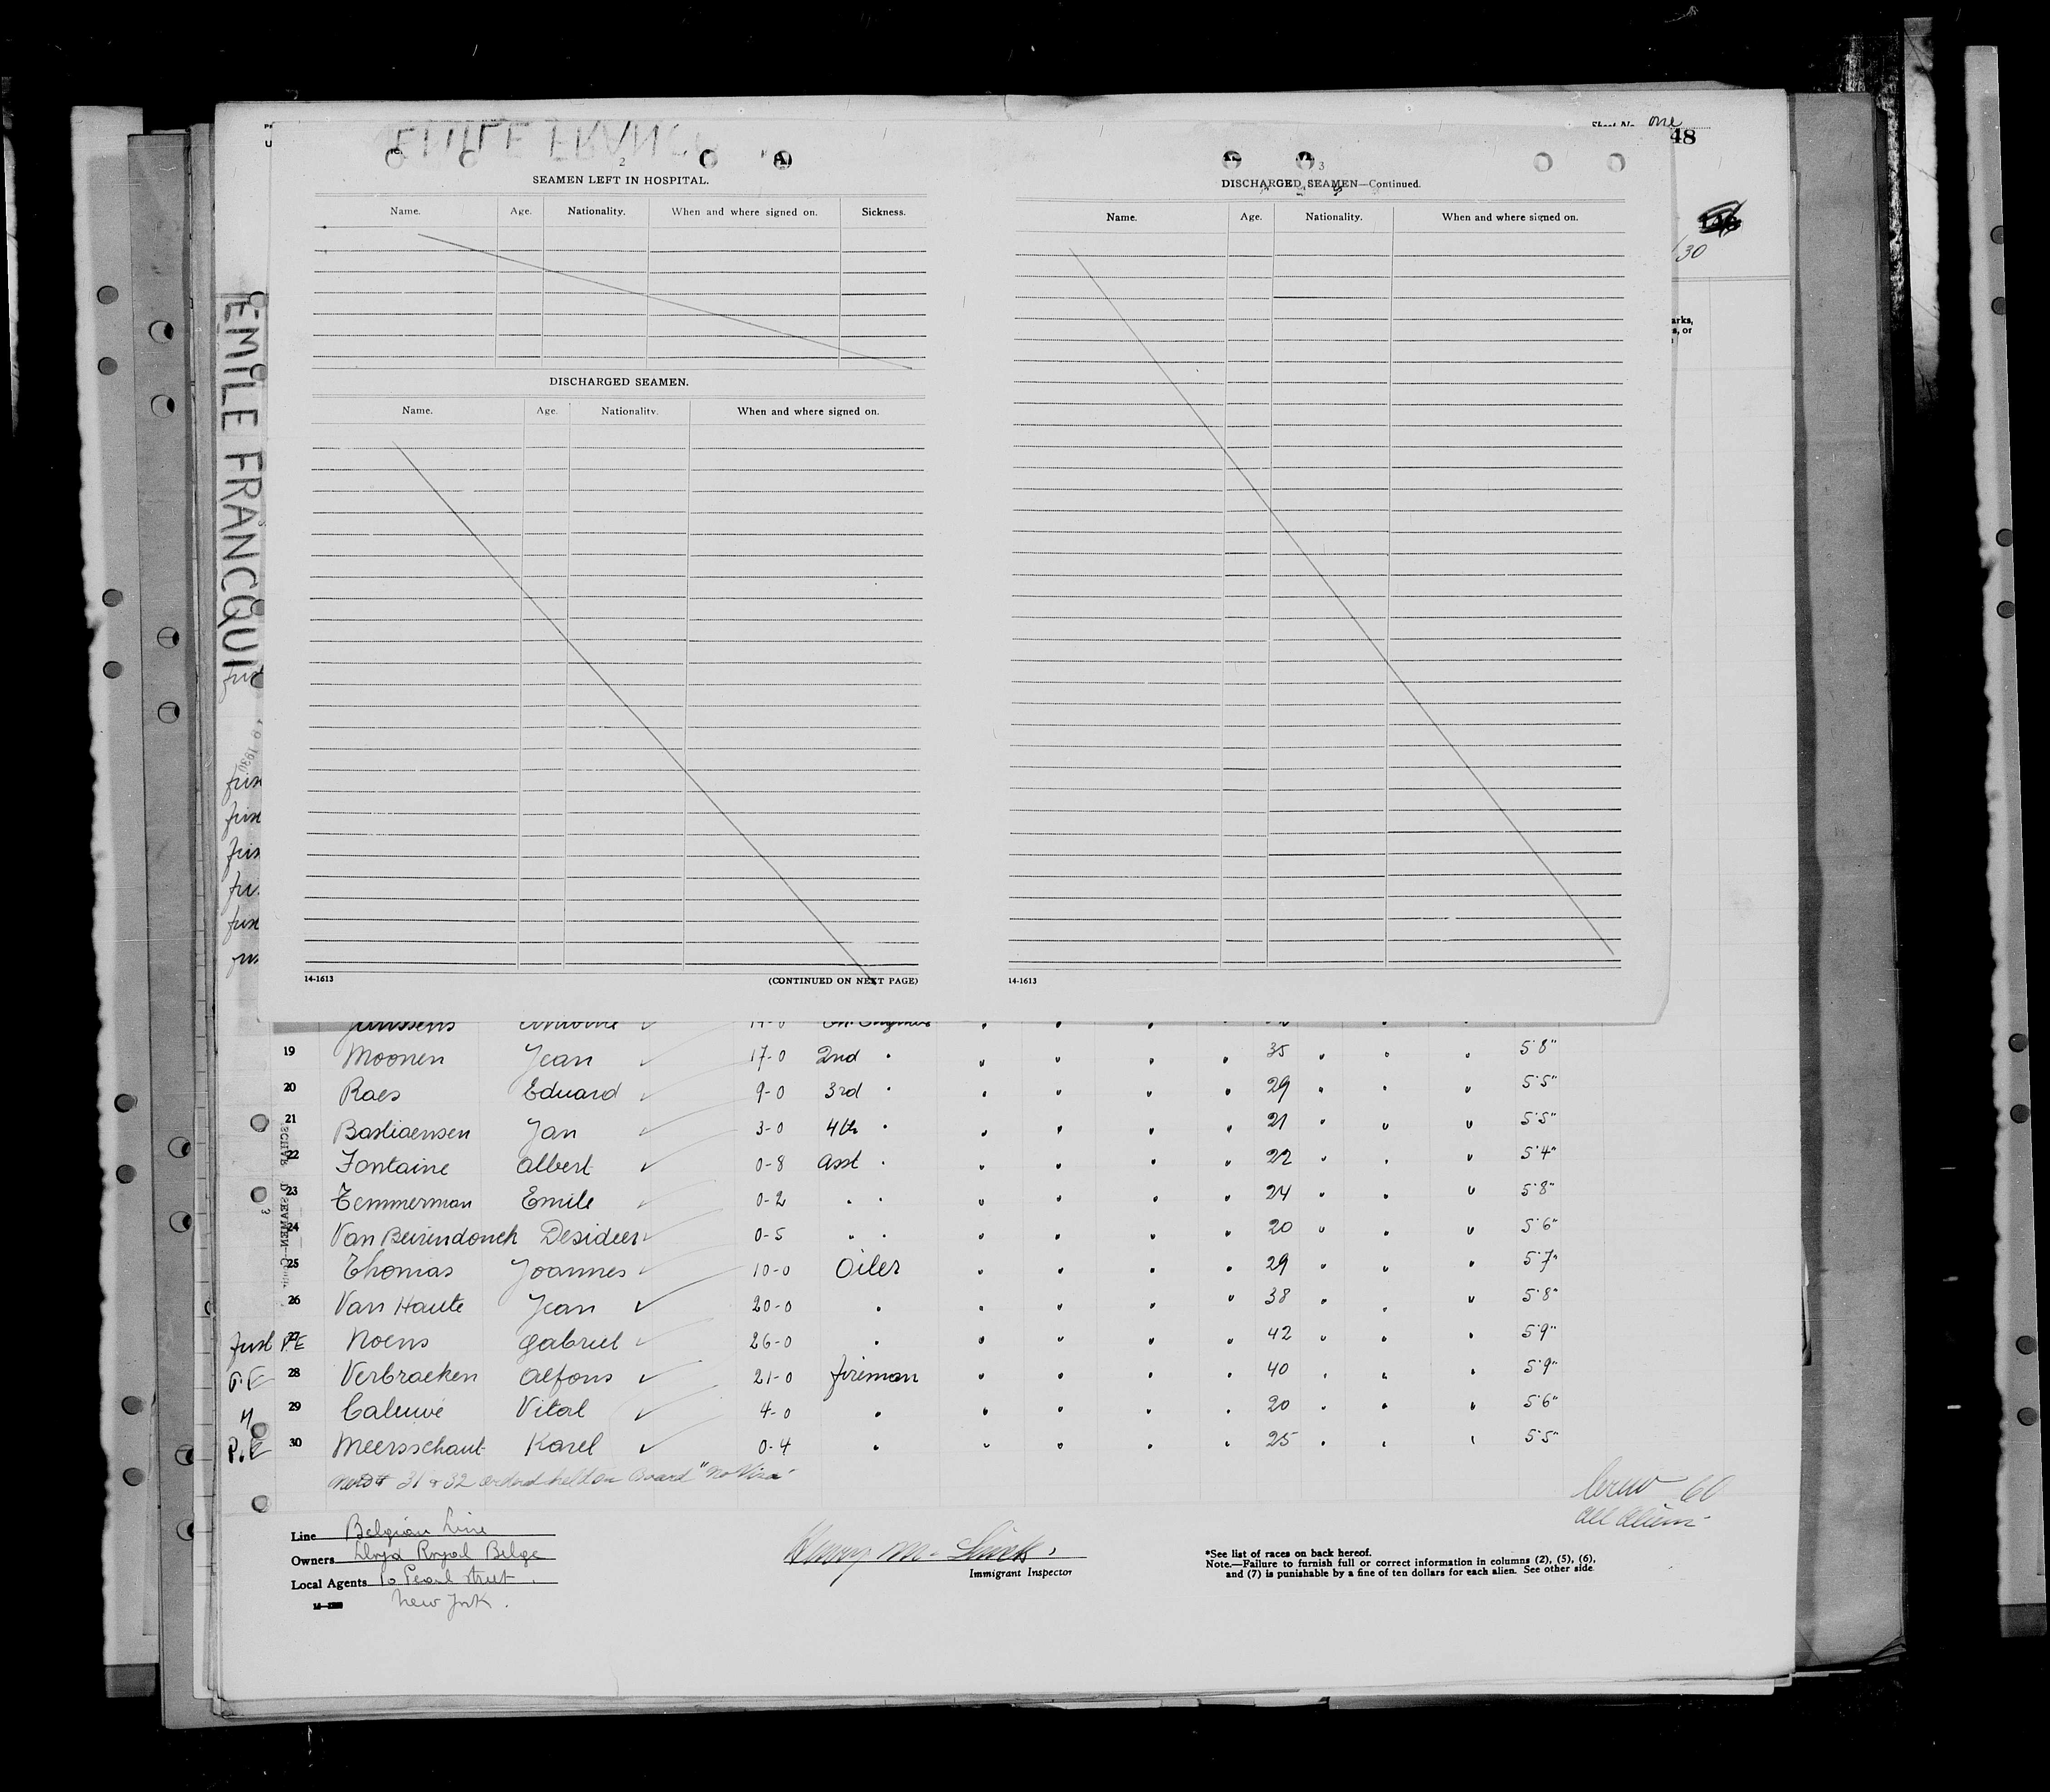 Sheet No. one
48
EMILE FRANC
2
SEAMEN LEFT IN HOSPITAL.
Name. Age. Nationality. When and where signed on. Sickness.
DISCHARGED SEAMEN.
Name. Age. Nationality. When and where signed on.
14-1613 (CONTINUED ON NEXT PAGE)
3
DISCHARGED SEAMEN—Continued.
Name. Age. Nationality. When and where signed on.
14-1613
30
arks,
s, or
EMILE FRANCQUI
1930
Janssens
19 Moonen Jean ✓ 17-0 2nd " " " " " 35 " " " 5'8"
20 Raes Eduard ✓ 9-0 3rd " " " " " 29 " " " 5'5"
21 Bastiaensen Jan ✓ 3-0 4th " " " " " 21 " " " 5'5"
22 Fontaine Albert ✓ 0-8 Asst " " " " " 22 " " " 5'4"
23 Temmerman Emile ✓ 0-2 " " " " " " 24 " " " 5'8"
24 Van Beirendonck Desideer ✓ 0-5 " " " " " " 20 " " " 5'6"
25 Thomas Joannes ✓ 10-0 Oiler " " " " 29 " " " 5'7"
26 Van Haute Jean ✓ 20-0 " " " " " 38 " " " 5'8"
Just PE 27 Noens Gabriel ✓ 26-0 " " " " " 42 " " " 5'9"
P.E 28 Verbraeken Alfons ✓ 21-0 fireman " " " " 40 " " " 5'9"
" 29 Caluwé Vital ✓ 4-0 " " " " " 20 " " " 5'6"
P.E 30 Meersschaut Karel ✓ 0-4 " " " " " 25 " " " 5'5"
31 & 32 ordered held on Board "No Visa"
Crew 60
all aliens
Line Belgian Line
Owners Lloyd Royal Belge
Local Agents 10 Pearl Street.
New York.
Immigrant Inspector
*See list of races on back hereof.
Note.—Failure to furnish full or correct information in columns (2), (5), (6),
and (7) is punishable by a fine of ten dollars for each alien. See other side